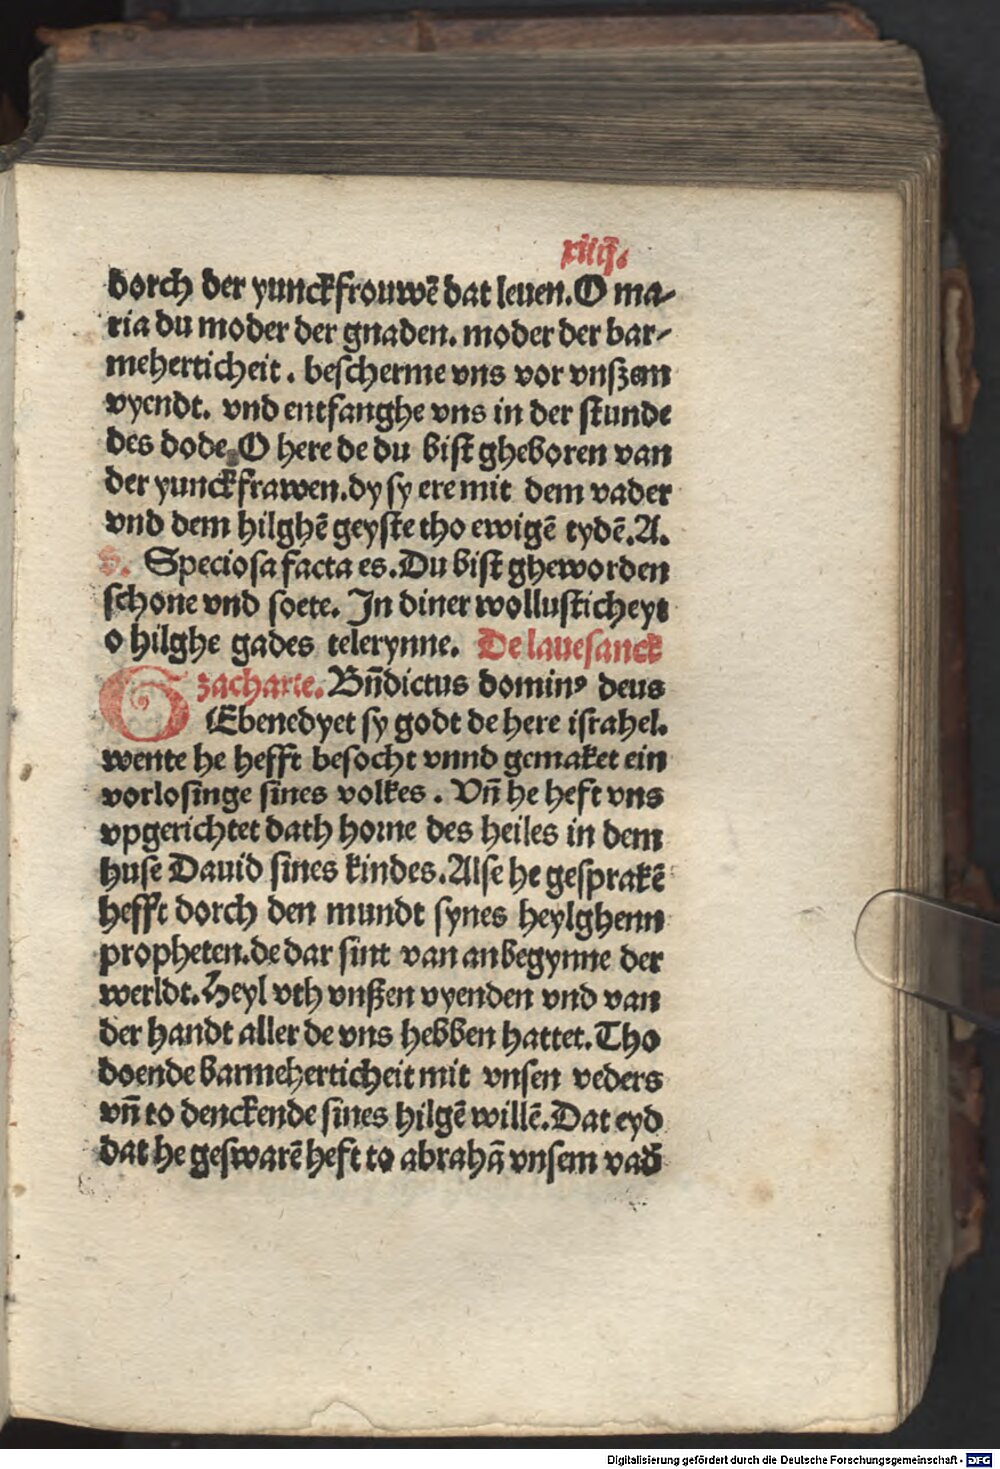 xiiij.
dorch der yunckfrouwē dat leuen. O ma-
ria du moder der gnaden. moder der bar-
meherticheit. bescherme vns vor vnszem
vyendt. vnd entfanghe vns in der stunde
des dode. O here de du bist gheboren van
der yunckfrawen. dy sy ere mit dem vader
vnd dem hilghē geyste tho ewigē tydē. A.
S. Speciosa facta es. Du bist gheworden
schone vnd soete. In diner wollusticheyt
o hilghe gades telerynne. De lauesanck
zacharie. Bn̄dictus dominꝰ deus
GEbenedyet sy godt de here israhel.
wente he hefft besocht vnnd gemaket ein
vorlosinge sines volkes. Vn̄ he heft vns
vpgerichtet dath horne des heiles in dem
huse Dauid sines kindes. Alse he gesprakē
hefft dorch den mundt synes heylghenn
propheten. de dar sint van anbegynne der
werldt. Heyl vth vnszen vyenden vnd van
der handt aller de vns hebben hattet. Tho
doende barmeherticheit mit vnsen veders
vn̄ to denckende sines hilgē willē. Dat eyd
dat he geswarē heft to abrahā vnsem vad̄
Digitalisierung gefördert durch die Deutsche Forschungsgemeinschaft - DFG